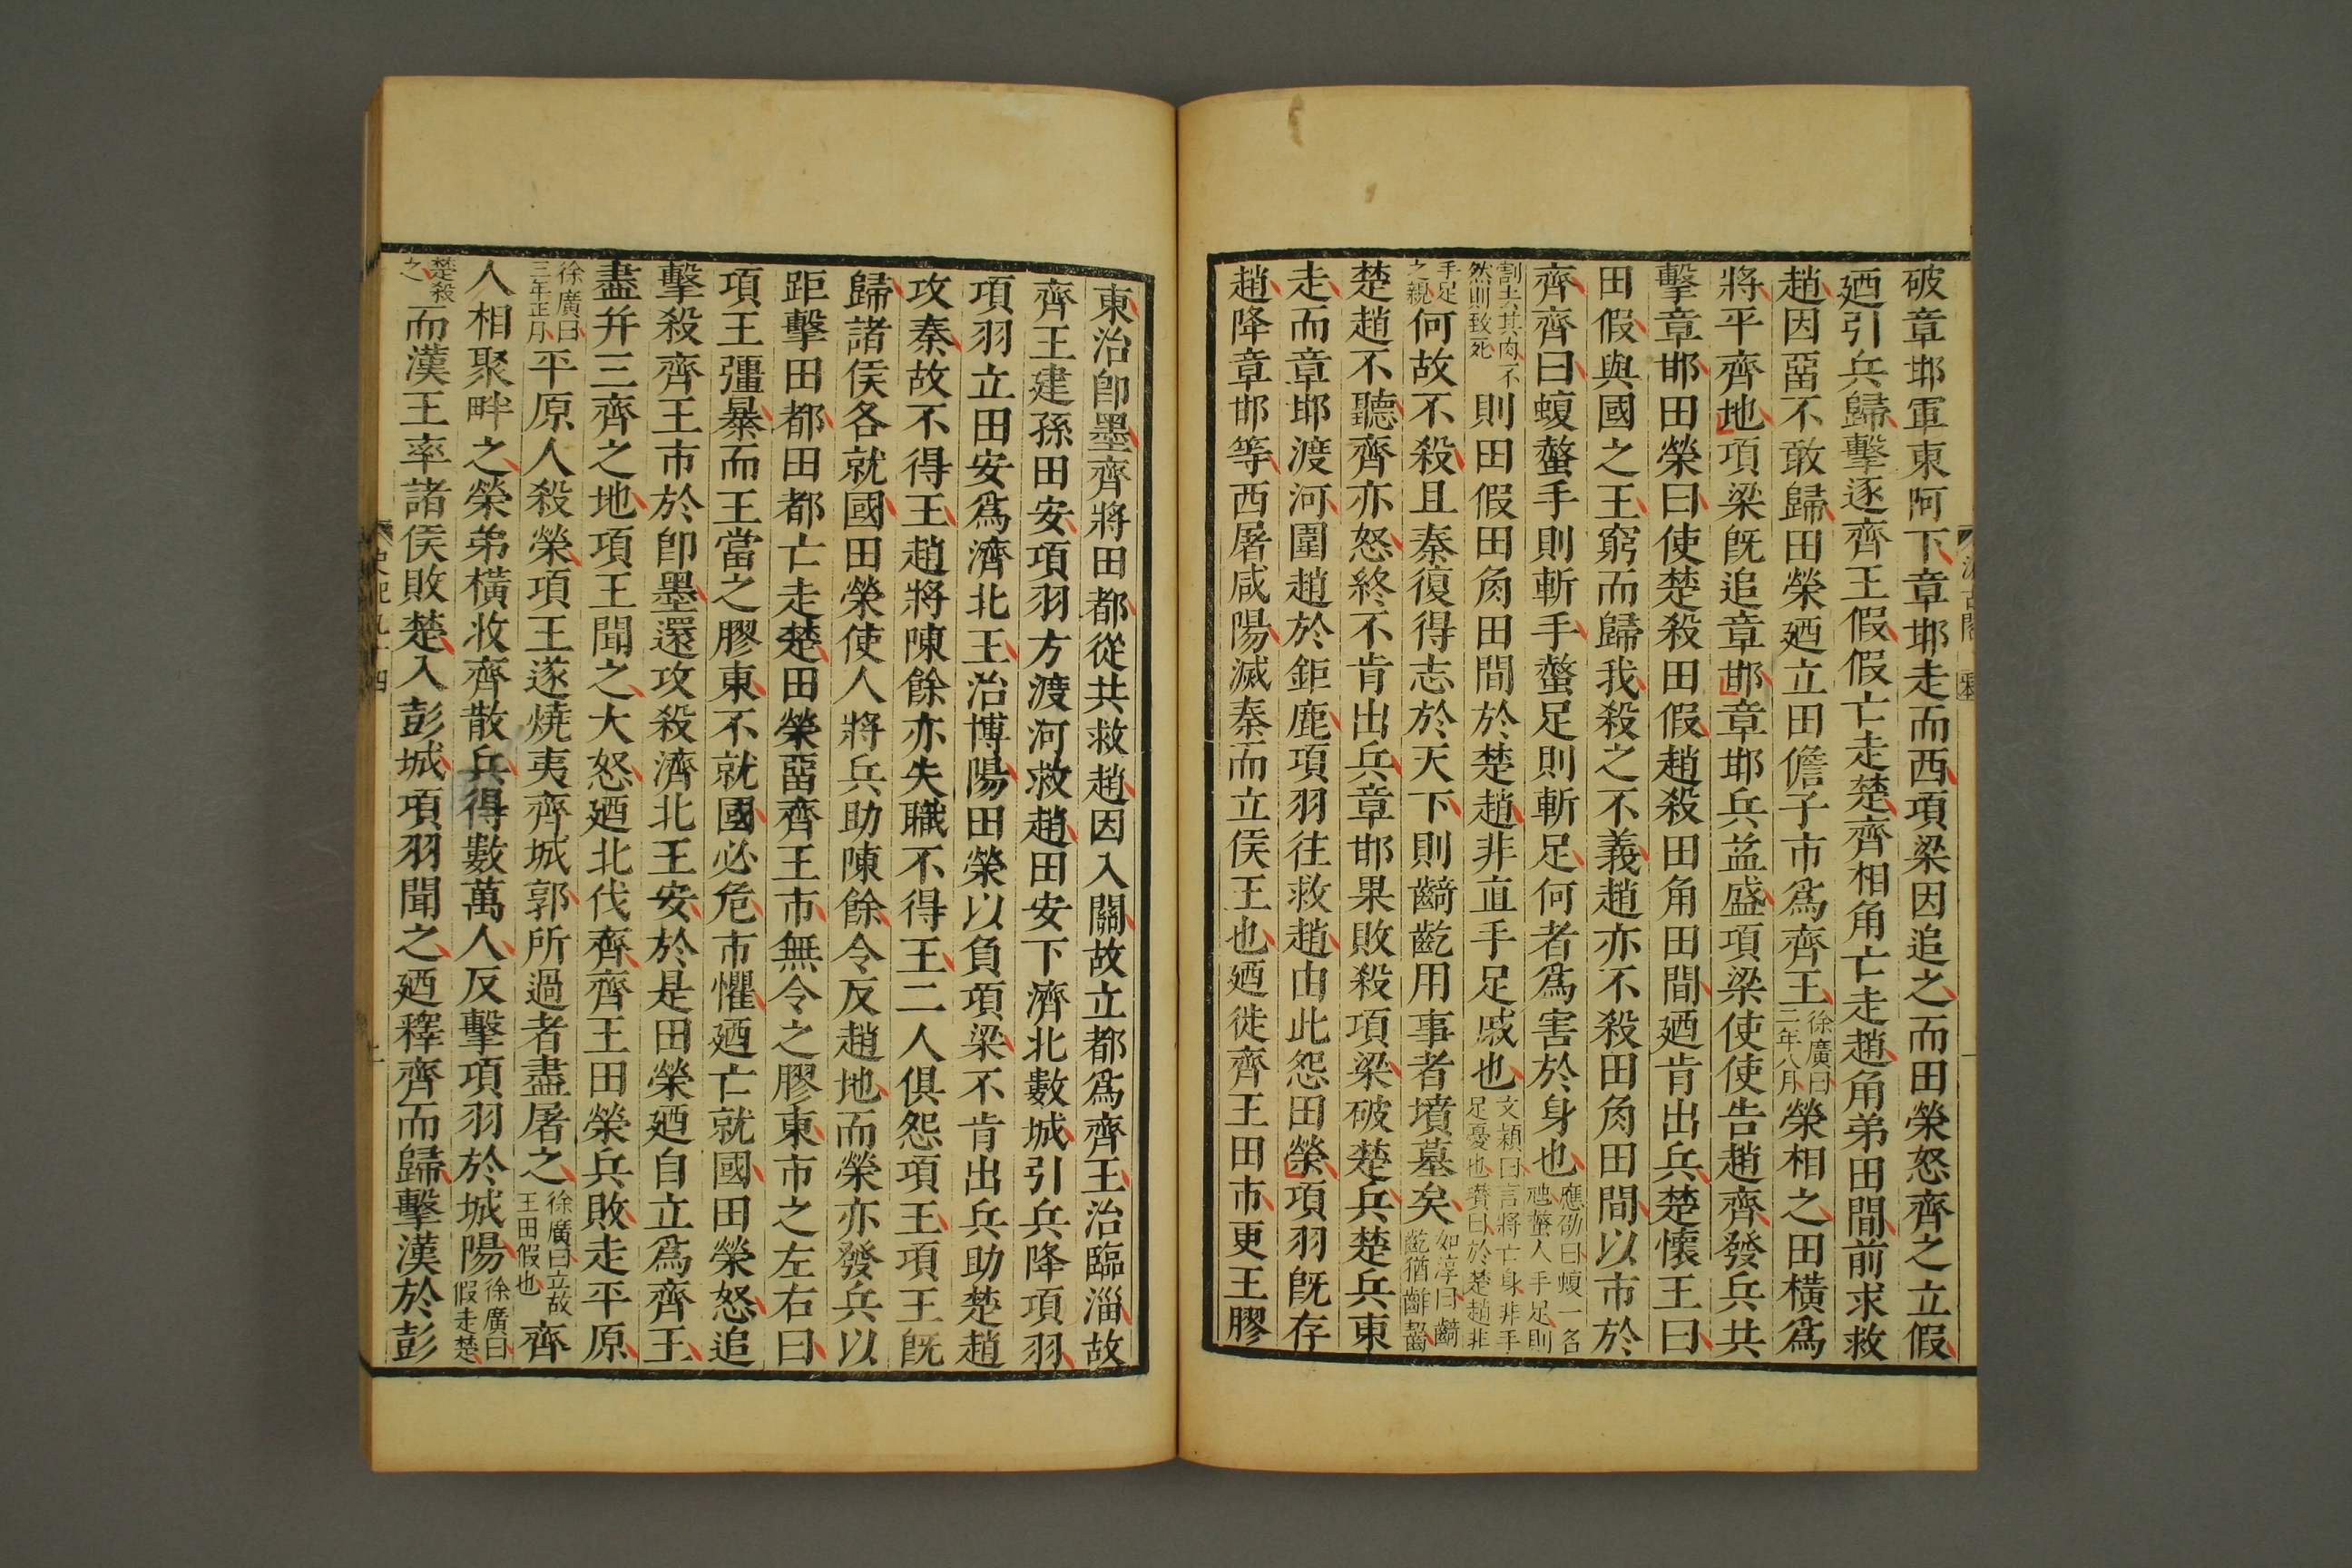 破章邯軍東阿下章邯走而西項梁因追之而田榮怒齊之立假
廼引兵歸擊逐齊王假假亡走楚齊相角亡走趙角弟田間前求救
趙因畱不敢歸田榮廼立田儋子市爲齊王徐廣曰二年八月榮相之田橫爲
將平齊地項梁旣追章邯章邯兵益盛項梁使使告趙齊發兵共
擊章邯田榮曰使楚殺田假趙殺田角田間廼肯出兵楚懷王曰
田假與國之王窮而歸我殺之不義趙亦不殺田角田間以市於
齊齊曰蝮螫手則斬手螫足則斬足何者爲害於身也應劭曰蝮一名虺螫人手足則
割去其肉不然則致死則田假田角田間於楚趙非直手足戚也文穎曰言將亡身非手足憂也瓚曰於楚趙非
手足之親何故不殺且秦復得志於天下則齮齕用事者墳墓矣如淳曰齮齕猶齰齧
楚趙不聽齊亦怒終不肯出兵章邯果敗殺項梁破楚兵楚兵東
走而章邯渡河圍趙於鉅鹿項羽往救趙由此怨田榮項羽旣存
趙降章邯等西屠咸陽滅秦而立侯王也廼徙齊王田市更王膠
東治卽墨齊將田都從共救趙因入關故立都爲齊王治臨淄故
齊王建孫田安項羽方渡河救趙田安下濟北數城引兵降項羽
項羽立田安爲濟北王治博陽田榮以負項梁不肯出兵助楚趙
攻秦故不得王趙將陳餘亦失職不得王二人俱怨項王項王旣
歸諸侯各就國田榮使人將兵助陳餘令反趙地而榮亦發兵以
距擊田都田都亡走楚田榮畱齊王市無令之膠東市之左右曰
項王彊暴而王當之膠東不就國必危市懼廼亡就國田榮怒追
擊殺齊王市於卽墨還攻殺濟北王安於是田榮廼自立爲齊王
盡幷三齊之地項王聞之大怒廼北伐齊齊王田榮兵敗走平原
徐廣曰三年正月平原人殺榮項王遂燒夷齊城郭所過者盡屠之徐廣曰立故王田假也齊
人相聚畔之榮弟橫收齊散兵得數萬人反擊項羽於城陽徐廣曰假走楚
楚殺之而漢王率諸侯敗楚入彭城項羽聞之廼釋齊而歸擊漢於彭